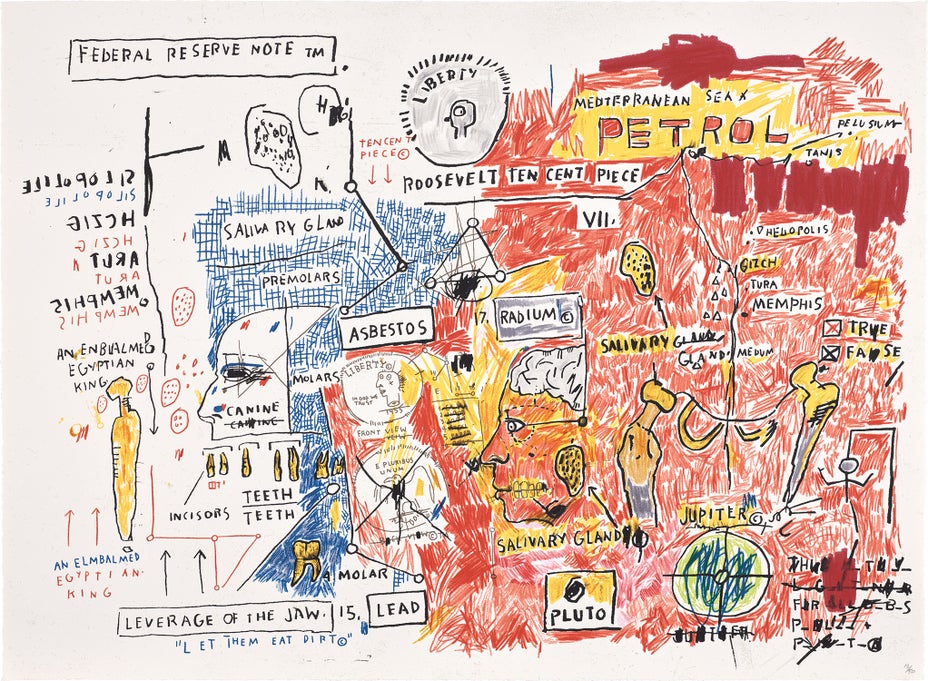 FEDERAL RESERVE NOTE TM.
LIBERTY
H
MEDITERRANEAN SEA X
PETROL
PELUSIUM
TANIS
TEN CENT
PIECE ©
ROOSEVELT TEN CENT PIECE
VII.
SALIVARY GLAND
PREMOLARS
HELIOPOLIS
GIZCH
TURA
MEMPHIS
MEDUM
SILOPOLILE
SILOPOLILE
HCZIG
HCZIG
ARUT
ARUT
MEMPHIS
MEMPHIS
17.
RADIUM ©
ASBESTOS
SALIVARY GLAND
GLAND
TRUE
FALSE
AN ENBUALMED
EGYPTIAN
KING
MOLARS
LIBERTY ©
IN GOD WE
TRUST
1955
FRONT VIEW
VIEW
CANINE
CANINE
E PLURIBUS
UNUM
INCISORS
TEETH
TEETH
SALIVARY GLAND
JUPITER ©
AN ELMBALMED
EGYPTIAN
KING
A MOLAR
PLUTO
JUPITER
LEVERAGE OF THE JAW.
15.
LEAD
"LET THEM EAT DIRT ©"